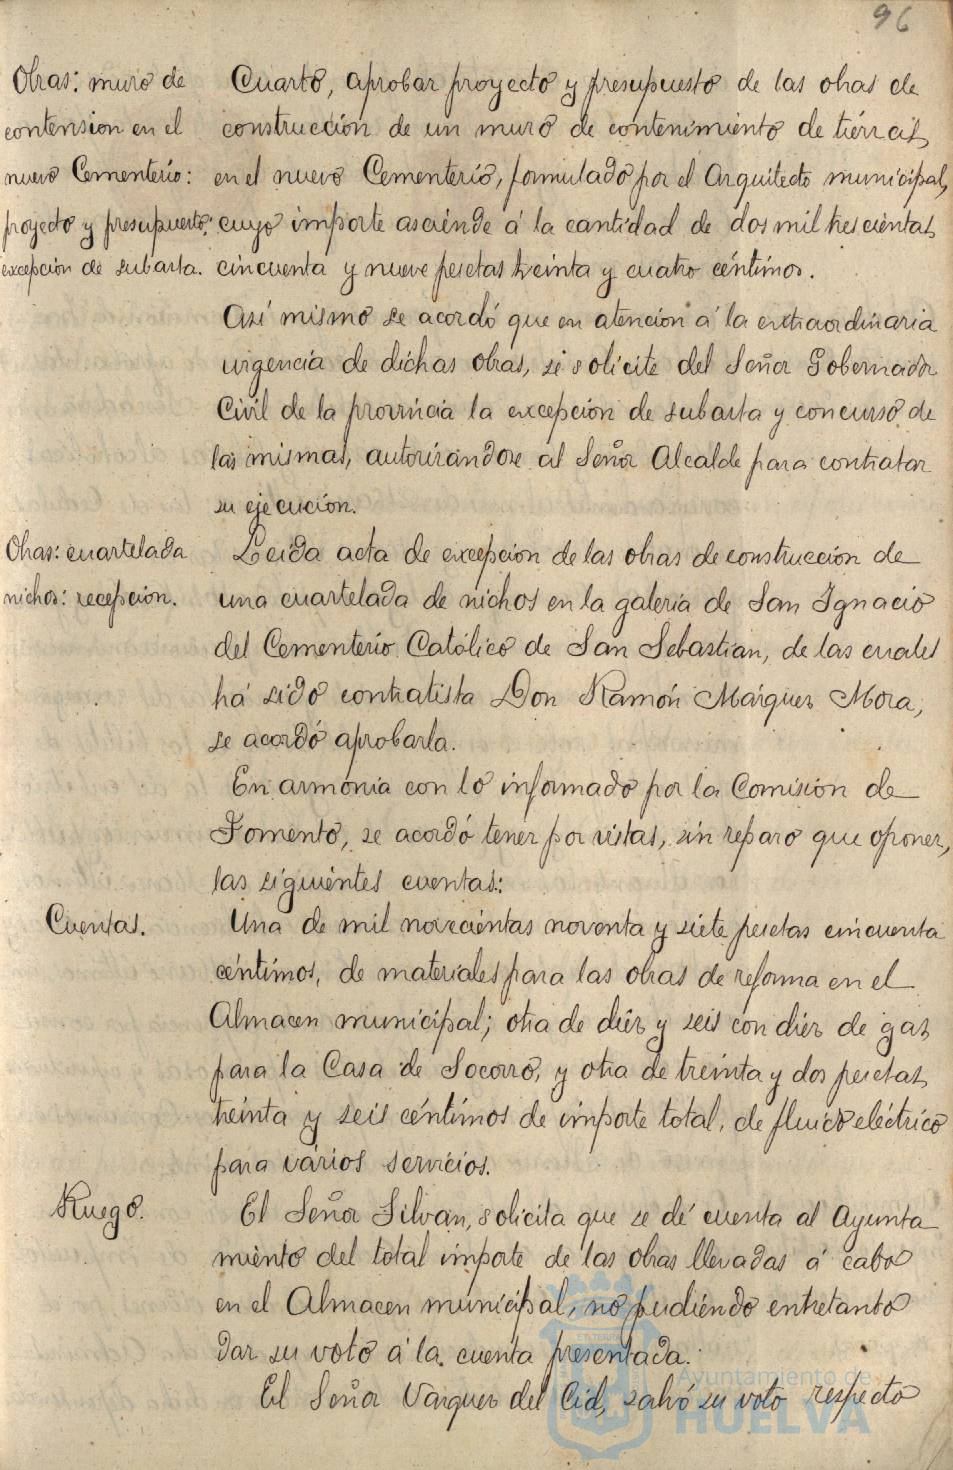 96
Obras: muro de
contension en el
nuevo Cementerio:
proyecto y presupuesto:
excepcion de subasta.
Cuarto, aprobar proyecto y presupuesto de las obras de
construcción de un muro de contenimiento de tierras,
en el nuevo Cementerio, formulado por el Arquitecto municipal,
cuyo importe asciende á la cantidad de dos mil trescientas
cincuenta y nueve pesetas treinta y cuatro céntimos.
Así mismo se acordó que en atención á la extraordinaria
urgencia de dichas obras, se solicite del Señor Gobernador
Civil de la provincia la excepcion de subasta y concurso de
las mismas, autorizándose al Señor Alcalde para contratar
su ejecución.
Obras: cuartelada
nichos: recepcion.
Leida acta de excepcion de las obras de construcción de
una cuartelada de nichos en la galeria de San Ignacio
del Cementerio Católico de San Sebastian, de las cuales
há sido contratista Don Ramón Márquez Mora,
se acordó aprobarla.
En armonia con lo informado por la Comision de
Fomento, se acordó tener por vistas, sin reparo que oponer,
las siguientes cuentas:
Cuentas.
Una de mil novecientas noventa y siete pesetas cincuenta
céntimos, de materiales para las obras de reforma en el
Almacen municipal; otra de diez y seis con diez de gas
para la Casa de Socorro, y otra de treinta y dos pesetas
treinta y seis céntimos de importe total, de fluido eléctrico
para varios servicios.
Ruego.
El Señor Silvan, solicita que se dé cuenta al Ayunta
miento del total importe de las obras llevadas á cabo
en el Almacen municipal, no pudiendo entretanto
dar su voto á la cuenta presentada.
El Señor Vazquez del Cid, salvó su voto respecto
Ayuntamiento de
HUELVA